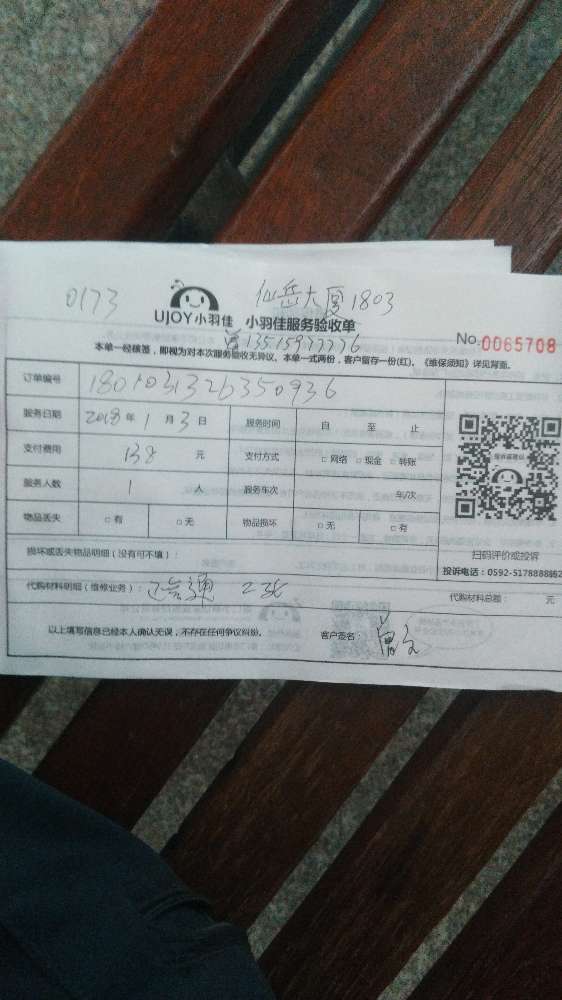 0173 仙岳大厦1803
UJOY小羽佳 小羽佳服务验收单
No.0065708
本单一经核签，即视为对本次服务验收无异议。本单一式两份，客户留存一份(红)。《维保须知》详见背面。
订单编号
服务日期 2018年1月3日 服务时间 自 至 止
支付费用 138元 支付方式 □网络 □现金 □转账
服务人数 1人 服务车次 车/次
物品丢失 □有 □无 物品损坏 □无 □有
扫码评价或投诉
损坏或丢失物品明细（没有可不填）：
投诉电话：0592-5178888转2
代购材料明细（维修业务）： 代购材料总额： 元
以上填写信息已经本人确认无误，不存在任何争议纠纷。 客户签名：